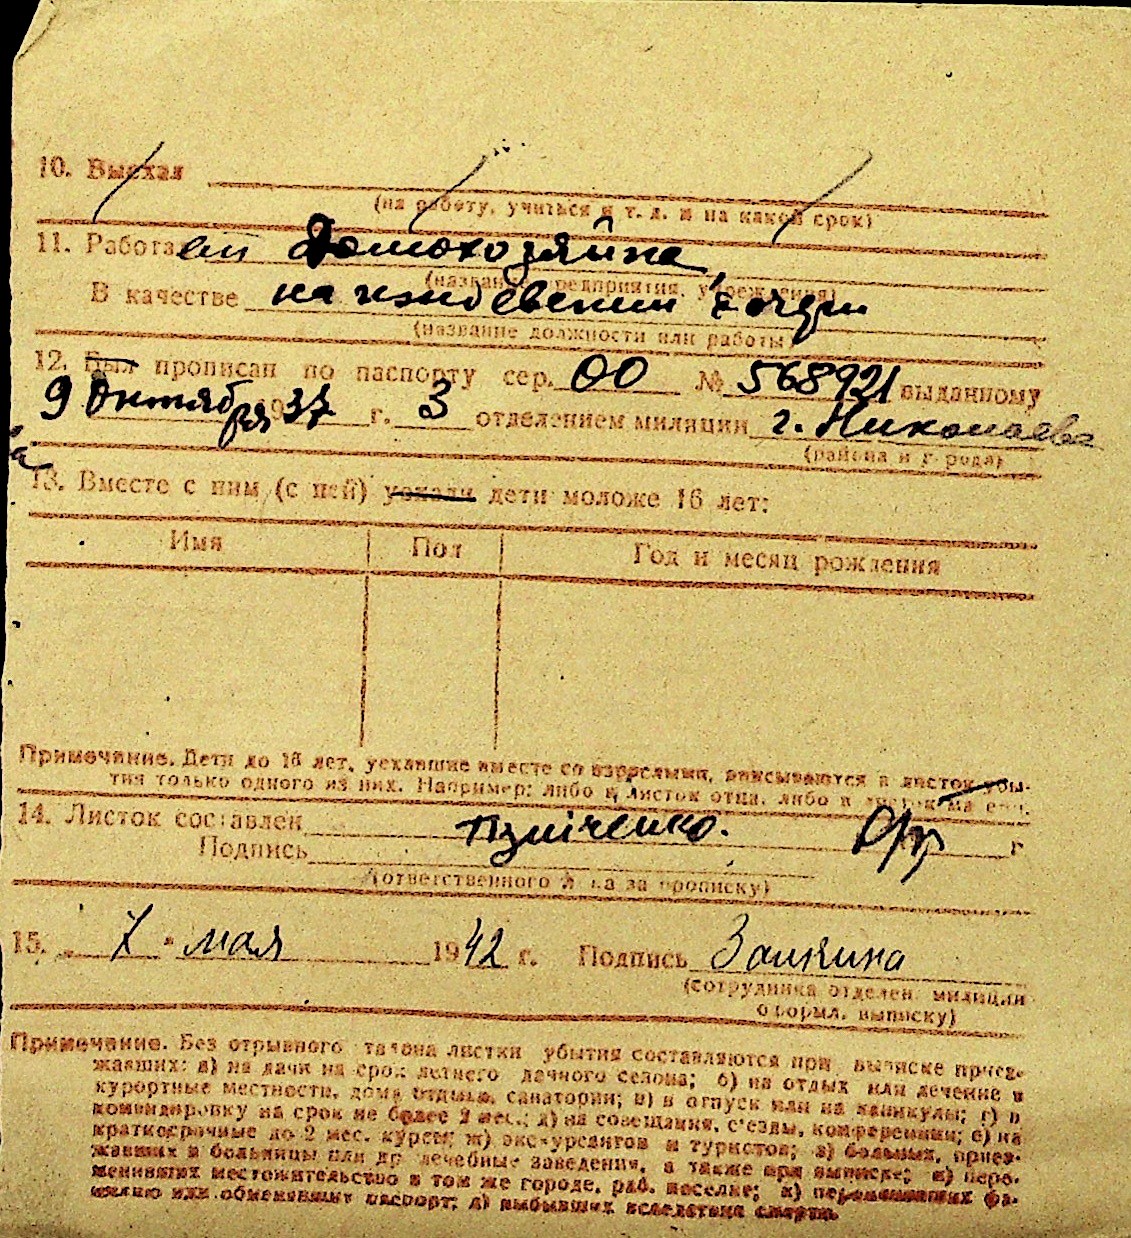 10. Выехал
(на работу, учиться и т. д. и на какой срок)
11. Работает домохозяйка,
(название предприятия, учреждения)
В качестве на иждевении дочери
(название должности или работы)
12. Был прописан по паспорту сер. ОО № 568921 выданному
9 Октября 1937 г. 3 отделением милиции г. Николаева
(района и города)
13. Вместе с ним (с ней) уехали дети моложе 16 лет:
Имя Пол Год и месяц рождения
Примечание. Дети до 16 лет, уехавшие вместе со взрослыми, вписываются в листок убы-
тия только одного из них. Например: либо в листок отца, либо в листок матери.
14. Листок составлен г.
Подпись
(ответственного лица за прописку)
15. „ 7 " мая 1942 г. Подпись Заикина
(сотрудника отделен. милиции
оформл. выписку)
Примечание. Без отрывного талона листки убытия составляются при выписке приез-
жавших: а) на дачи на срок летнего дачного сезона; б) на отдых или лечение в
курортные местности, дома отдыха, санатории; в) в отпуск или на каникулы; г) в
командировку на срок не более 2 мес.; д) на совещания, съезды, конференции; е) на
краткосрочные до 2 мес. курсы; ж) экскурсантов и туристов; з) больных, приез-
жавших в больницы или др. лечебные заведения, а также при выписке; и) пере-
менивших местожительство в том же городе, раб. поселке; к) переменивших фа-
милию или обменявших паспорт; л) выбывших вследствие смерти.